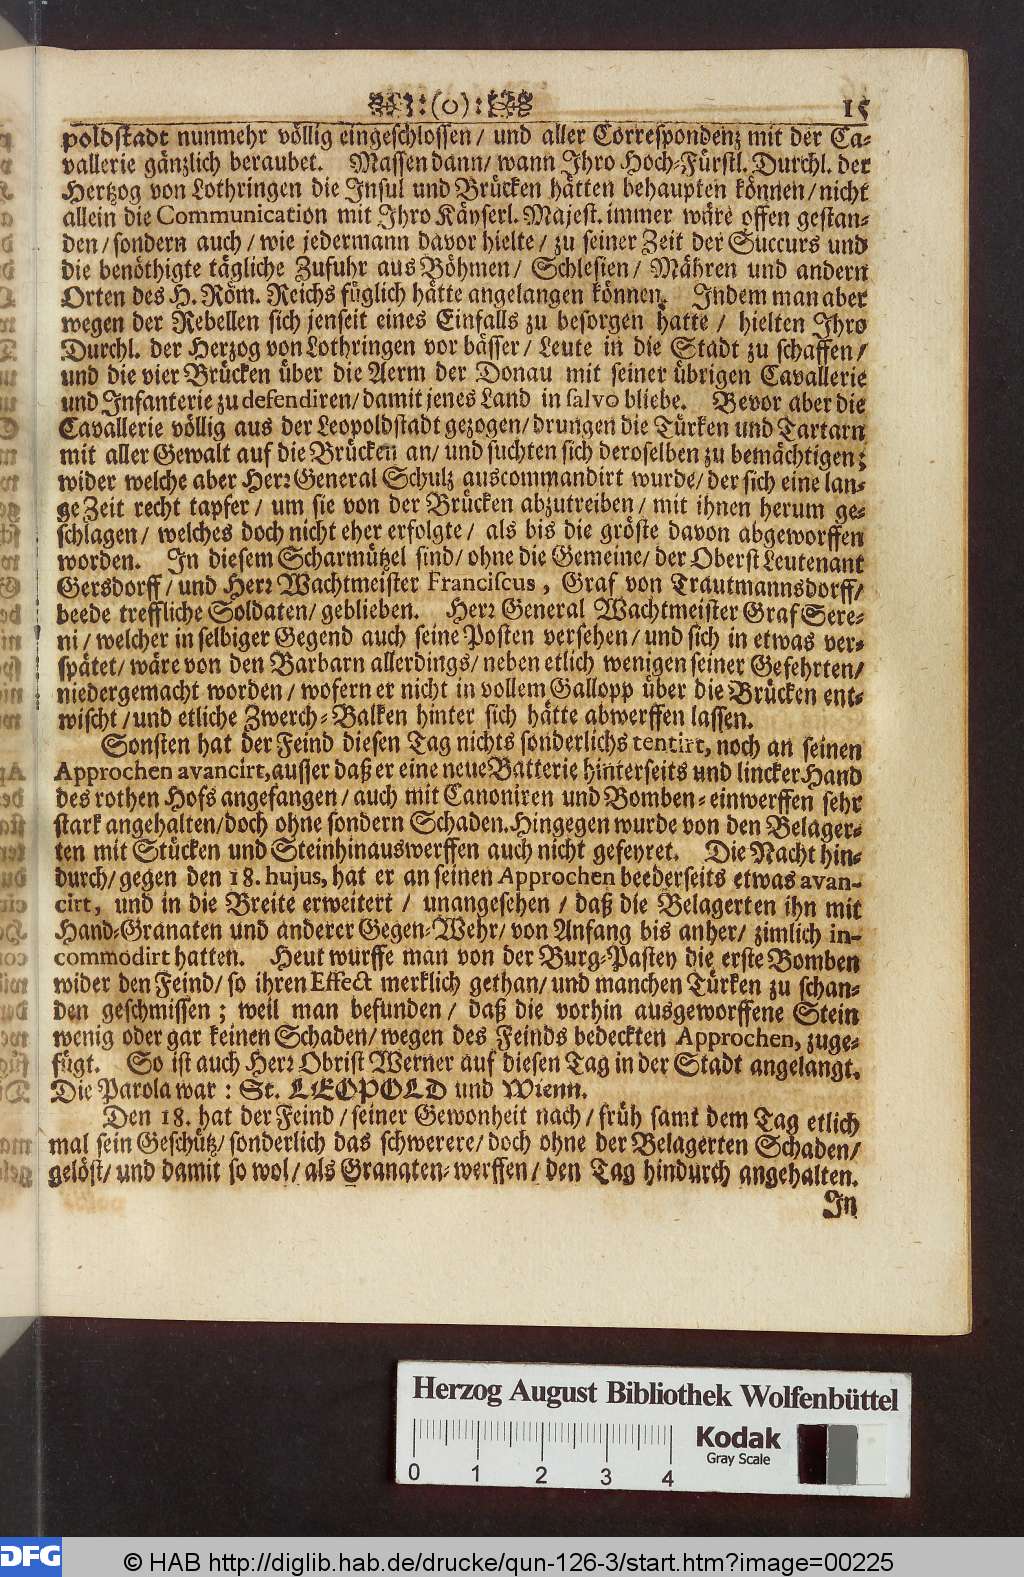 :(o): 15
poldstadt nunmehr völlig eingeschlossen / und aller Correspondenz mit der Ca-
vallerie gänzlich beraubet. Massen dann / wann Ihro Hoch-Fürstl. Durchl. der
Hertzog von Lothringen die Insul und Brücken hätten behaupten können / nicht
allein die Communication mit Ihro Käyserl. Majest. immer wäre offen gestan-
den / sondern auch / wie jedermann davor hielte / zu seiner Zeit der Succurs und
die benöthigte tägliche Zufuhr aus Böhmen / Schlesien / Mähren und andern
Orten des H. Röm. Reichs füglich hätte angelangen können. Indem man aber
wegen der Rebellen sich jenseit eines Einfalls zu besorgen hatte / hielten Ihro
Durchl. der Herzog von Lothringen vor bässer / Leute in die Stadt zu schaffen /
und die vier Brücken über die Aerm der Donau mit seiner übrigen Cavallerie
und Infanterie zu defendiren / damit jenes Land in salvo bliebe. Bevor aber die
Cavallerie völlig aus der Leopoldstadt gezogen / drungen die Türken und Tartarn
mit aller Gewalt auf die Brücken an / und suchten sich deroselben zu bemächtigen ;
wider welche aber Herr General Schulz auscommandirt wurde / der sich eine lan-
ge Zeit recht tapfer / um sie von der Brücken abzutreiben / mit ihnen herum ge-
schlagen / welches doch nicht eher erfolgte / als bis die gröste davon abgeworffen
worden. In diesem Scharmützel sind / ohne die Gemeine / der Oberst Leutenant
Gersdorff / und Herr Wachtmeister Franciscus, Graf von Trautmannsdorff /
beede treffliche Soldaten / geblieben. Herr General Wachtmeister Graf Sere-
ni / welcher in selbiger Gegend auch seine Posten versehen / und sich in etwas ver-
spätet / wäre von den Barbarn allerdings / neben etlich wenigen seiner Gefehrten /
niedergemacht worden / wofern er nicht in vollem Gallopp über die Brücken ent-
wischt / und etliche Zwerch-Balken hinter sich hätte abwerffen lassen.
Sonsten hat der Feind diesen Tag nichts sonderlichs tentirt, noch an seinen
Approchen avancirt, ausser daß er eine neue Batterie hinterseits und lincker Hand
des rothen Hofs angefangen / auch mit Canoniren und Bomben-einwerffen sehr
stark angehalten / doch ohne sondern Schaden. Hingegen wurde von den Belager-
ten mit Stücken und Steinhinauswerffen auch nicht gefeyret. Die Nacht hin-
durch / gegen den 18. hujus, hat er an seinen Approchen beederseits etwas avan-
cirt, und in die Breite erweitert / unangesehen / daß die Belagerten ihn mit
Hand-Granaten und anderer Gegen-Wehr / von Anfang bis anher / zimlich in-
commodirt hatten. Heut wurffe man von der Burg-Pastey die erste Bomben
wider den Feind / so ihren Effect merklich gethan / und manchen Türken zu schan-
den geschmissen ; weil man befunden / daß die vorhin ausgeworffene Stein
wenig oder gar keinen Schaden / wegen des Feinds bedeckten Approchen, zuge-
fügt. So ist auch Herr Obrist Werner auf diesen Tag in der Stadt angelangt.
Die Parola war : St. LEOPOLD und Wienn.
Den 18. hat der Feind / seiner Gewonheit nach / früh samt dem Tag etlich
mal sein Geschütz / sonderlich das schwerere / doch ohne der Belagerten Schaden /
gelöst / und damit so wol / als Granaten-werffen / den Tag hindurch angehalten.
In
Herzog August Bibliothek Wolfenbüttel
Kodak
Gray Scale
0 1 2 3 4
DFG © HAB http://diglib.hab.de/drucke/qun-126-3/start.htm?image=00225